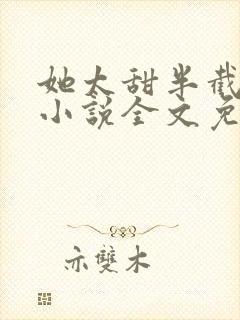 她太甜半截
小說全文免
亦雙木